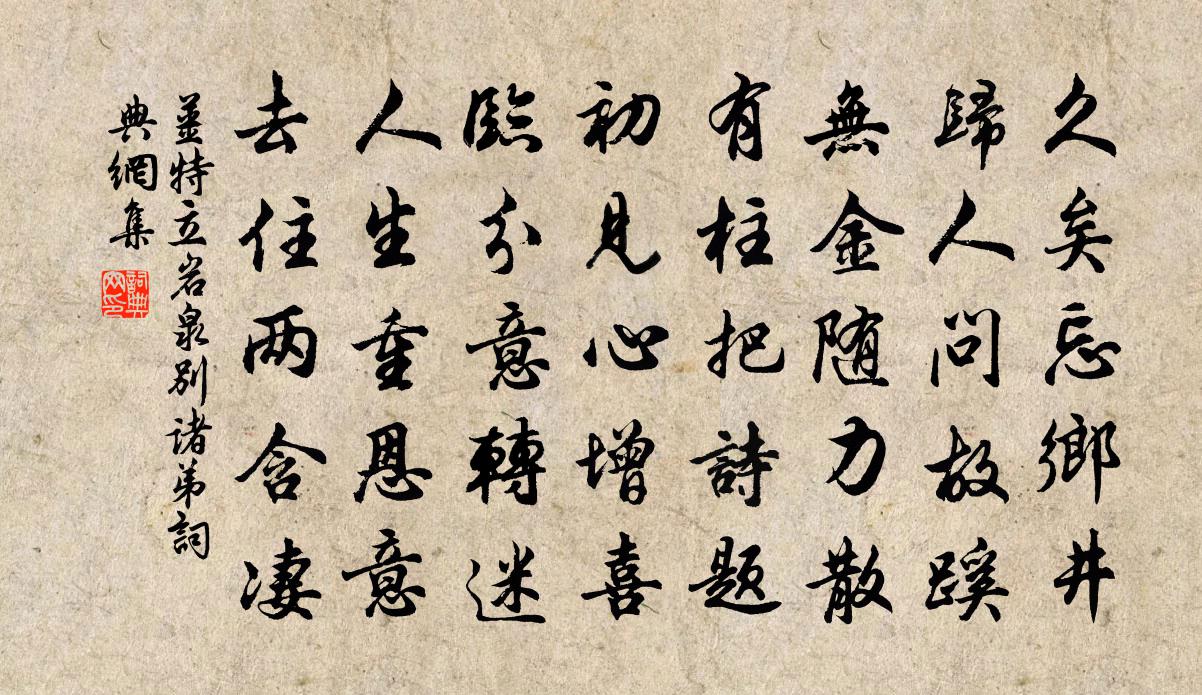 久矣忘鄉井
歸人問故蹊
無金隨力散
有柱把詩題
初見心增喜
臨分意轉迷
人生重恩意
去住两含淒
姜特立岩泉别諸弟詞
典網集
詞典
网印